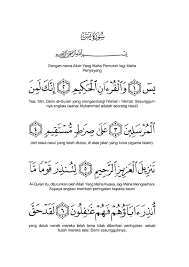 سُورَةُ يسٓ
بِسْمِ اللَّهِ الرَّحْمَٰنِ الرَّحِيمِ
Dengan nama Allah Yang Maha Pemurah lagi Maha
Penyayang
يسٓ ١ وَالْقُرْءَانِ الْحَكِيمِ ٢ إِنَّكَ لَمِنَ
Yaa, Siin. Demi al-Quran yang mengandungi hikmat-hikmat. Sesungguh-
nya engkau (wahai Muhammad adalah seorang rasul)
الْمُرْسَلِينَ ٣ عَلَىٰ صِرَٰطٍ مُّسْتَقِيمٍ ٤
dari rasul-rasul yang telah diutus, di atas jalan yang lurus (agama Islam).
تَنزِيلَ الْعَزِيزِ الرَّحِيمِ ٥ لِتُنذِرَ قَوْمًا مَّا
Al-Quran itu, diturunkan oleh Allah Yang Maha Kuasa, lagi Maha Mengasihani.
Supaya engkau memberi peringatan kepada kaum
أُنذِرَ ءَابَاؤُهُمْ فَهُمْ غَٰفِلُونَ ٦ لَقَدْ حَقَّ
yang datuk nenek mereka telah lama tidak diberikan peringatan sebab
itulah mereka lalai. Demi sesungguhnya,